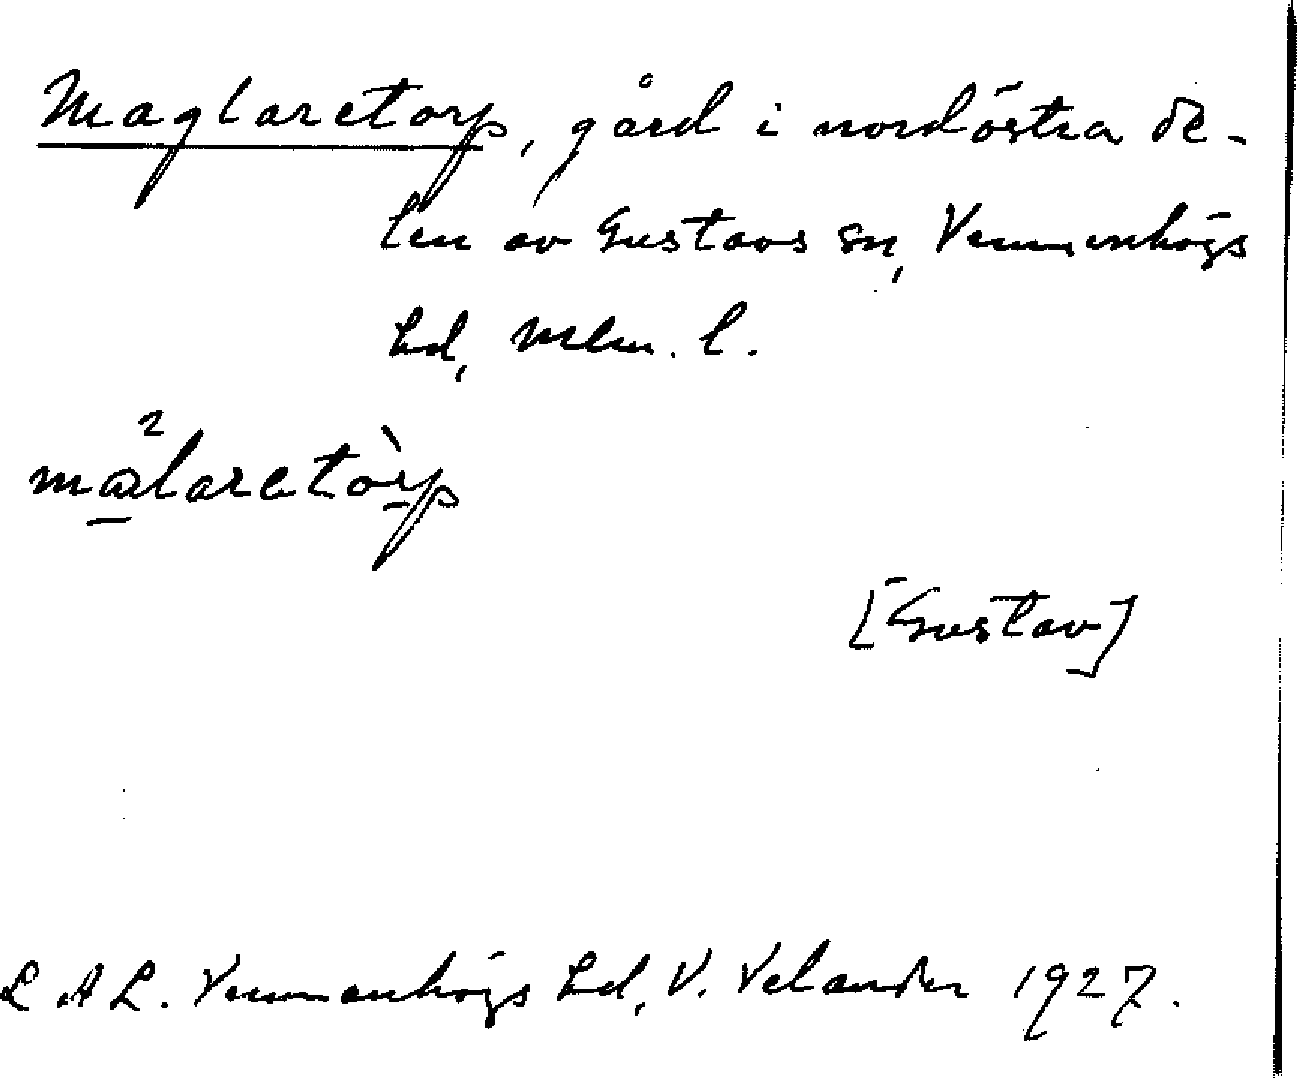 Maglaretorp, gård i nordöstra de-
len av Gustavs sn, Vemmenhögs
hd, Mlm. l.
2
malaretòrp
[Gustav]
L A L. Vemmenhögs hd, V. Velander 1927.